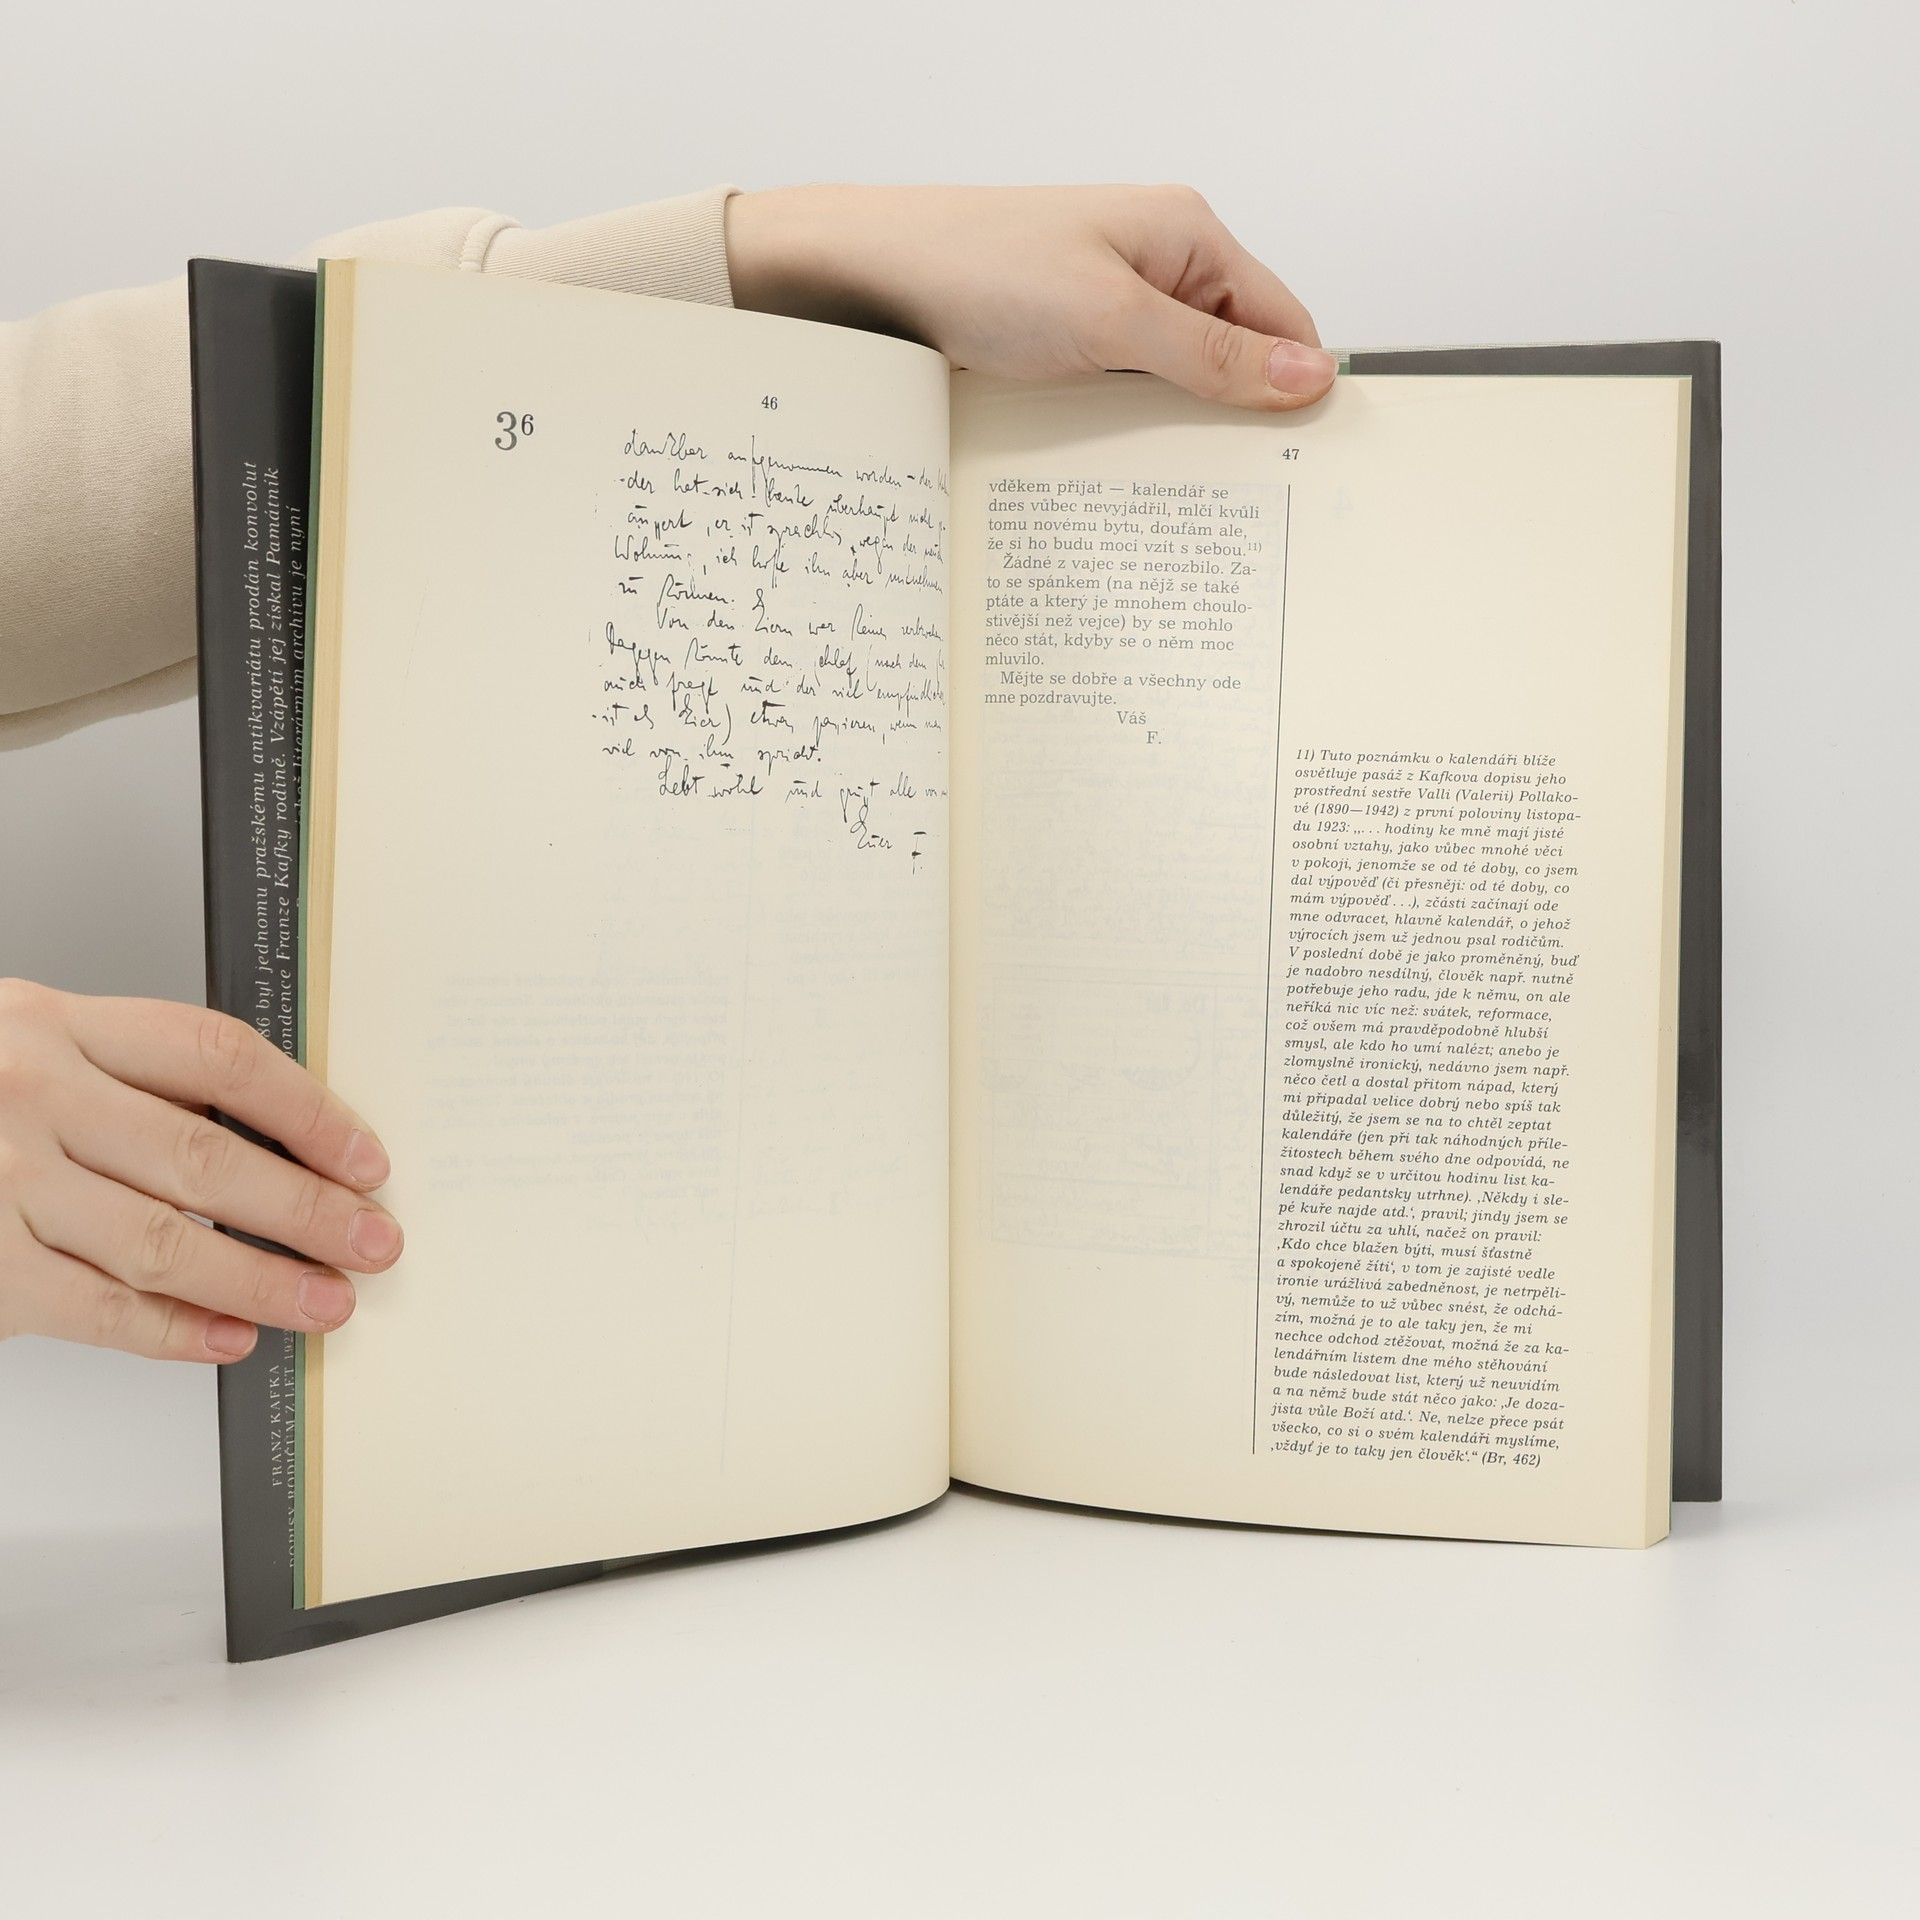 86 byl jednomu pražskému antikvariátu prodán konvolut
Franze Kafky rodině. Vzápětí jej získal Památník
literárním archívu je nyní
FRANZ KAFKA
DOPISY RODIČŮM Z LET 1922
46
36
dankbar aufgenommen worden – der
der hat sich heute überhaupt nicht
äussert, er ist sprachlos wegen der
Wohnung, ich hoffe ihn aber mitnehmen
zu können.
Von den Eiern war keines
Dagegen könnte dem Schlaf (nach dem
auch fragt und der viel
ist als Eier) etwas passieren, wenn man
viel von ihm spricht.
Lebt wohl und grüsst alle von
Euer F.
47
vděkem přijat — kalendář se
dnes vůbec nevyjádřil, mlčí kvůli
tomu novému bytu, doufám ale,
že si ho budu moci vzít s sebou.11)
Žádné z vajec se nerozbilo. Za-
to se spánkem (na nějž se také
ptáte a který je mnohem choulo-
stivější než vejce) by se mohlo
něco stát, kdyby se o něm moc
mluvilo.
Mějte se dobře a všechny ode
mne pozdravujte.
Váš
F.
11) Tuto poznámku o kalendáři blíže
osvětluje pasáž z Kafkova dopisu jeho
prostřední sestře Valli (Valerii) Pollako-
vé (1890—1942) z první poloviny listopa-
du 1923: „. . . hodiny ke mně mají jisté
osobní vztahy, jako vůbec mnohé věci
v pokoji, jenomže se od té doby, co jsem
dal výpověď (či přesněji: od té doby, co
mám výpověď . . .), zčásti začínají ode
mne odvracet, hlavně kalendář, o jehož
výrocích jsem už jednou psal rodičům.
V poslední době je jako proměněný, buď
je nadobro nesdílný, člověk např. nutně
potřebuje jeho radu, jde k němu, on ale
neříká nic víc než: svátek, reformace,
což ovšem má pravděpodobně hlubší
smysl, ale kdo ho umí nalézt; anebo je
zlomyslně ironický, nedávno jsem např.
něco četl a dostal přitom nápad, který
mi připadal velice dobrý nebo spíš tak
důležitý, že jsem se na to chtěl zeptat
kalendáře (jen při tak náhodných příle-
žitostech během svého dne odpovídá, ne
snad když se v určitou hodinu list ka-
lendáře pedantsky utrhne). ‚Někdy i sle-
pé kuře najde atd.‘, pravil; jindy jsem se
zhrozil účtu za uhlí, načež on pravil:
‚Kdo chce blažen býti, musí šťastně
a spokojeně žíti‘, v tom je zajisté vedle
ironie urážlivá zabedněnost, je netrpěli-
vý, nemůže to už vůbec snést, že odchá-
zím, možná je to ale taky jen, že mi
nechce odchod ztěžovat, možná že za ka-
lendářním listem dne mého stěhování
bude následovat list, který už neuvidím
a na němž bude stát něco jako: ‚Je doza-
jista vůle Boží atd.‘. Ne, nelze přece psát
všecko, co si o svém kalendáři myslíme,
‚vždyť je to taky jen člověk‘.“ (Br, 462)